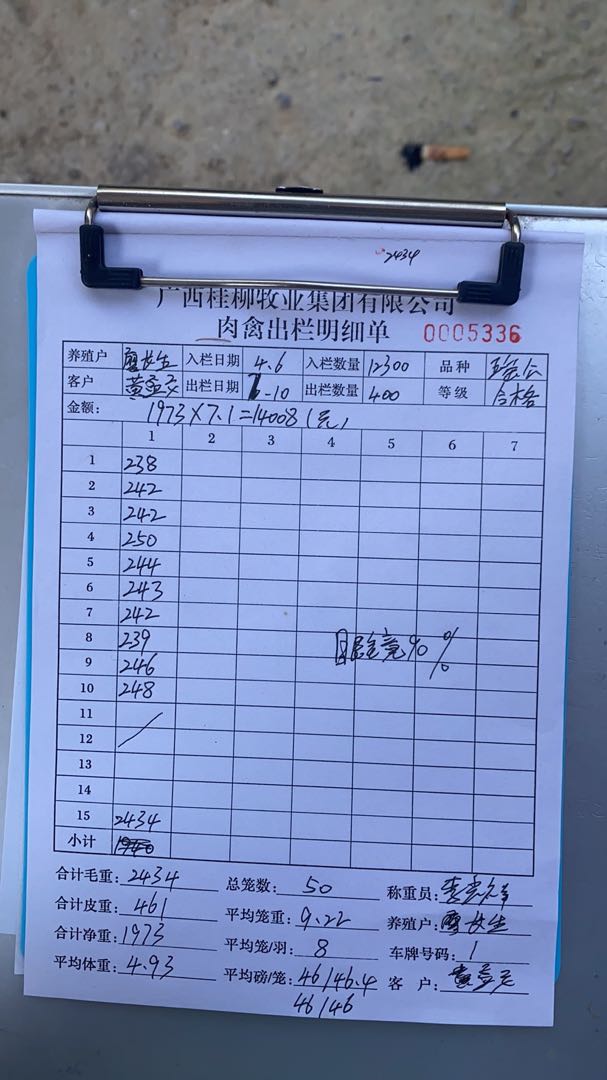 2434
广西桂柳牧业集团有限公司
肉禽出栏明细单 0005336
养殖户 廖长生 入栏日期 4.6 入栏数量 12300 品种
客户 黄 出栏日期 7-10 出栏数量 400 等级 合格
金额: 1973×7.1=14008(元)
1 2 3 4 5 6 7
1 238
2 242
3 242
4 250
5 244
6 243
7 242
8 239
眼 竟90%
9 246
10 248
11
12
13
14
15 2434
小计
合计毛重: 2434 总笼数: 50 称重员:
合计皮重: 461 平均笼重: 9.22 养殖户: 廖长生
合计净重: 1973 平均笼/羽: 8 车牌号码: 1
平均体重: 4.93 平均磅/笼: 46/46.4 客 户: 黄
46/46